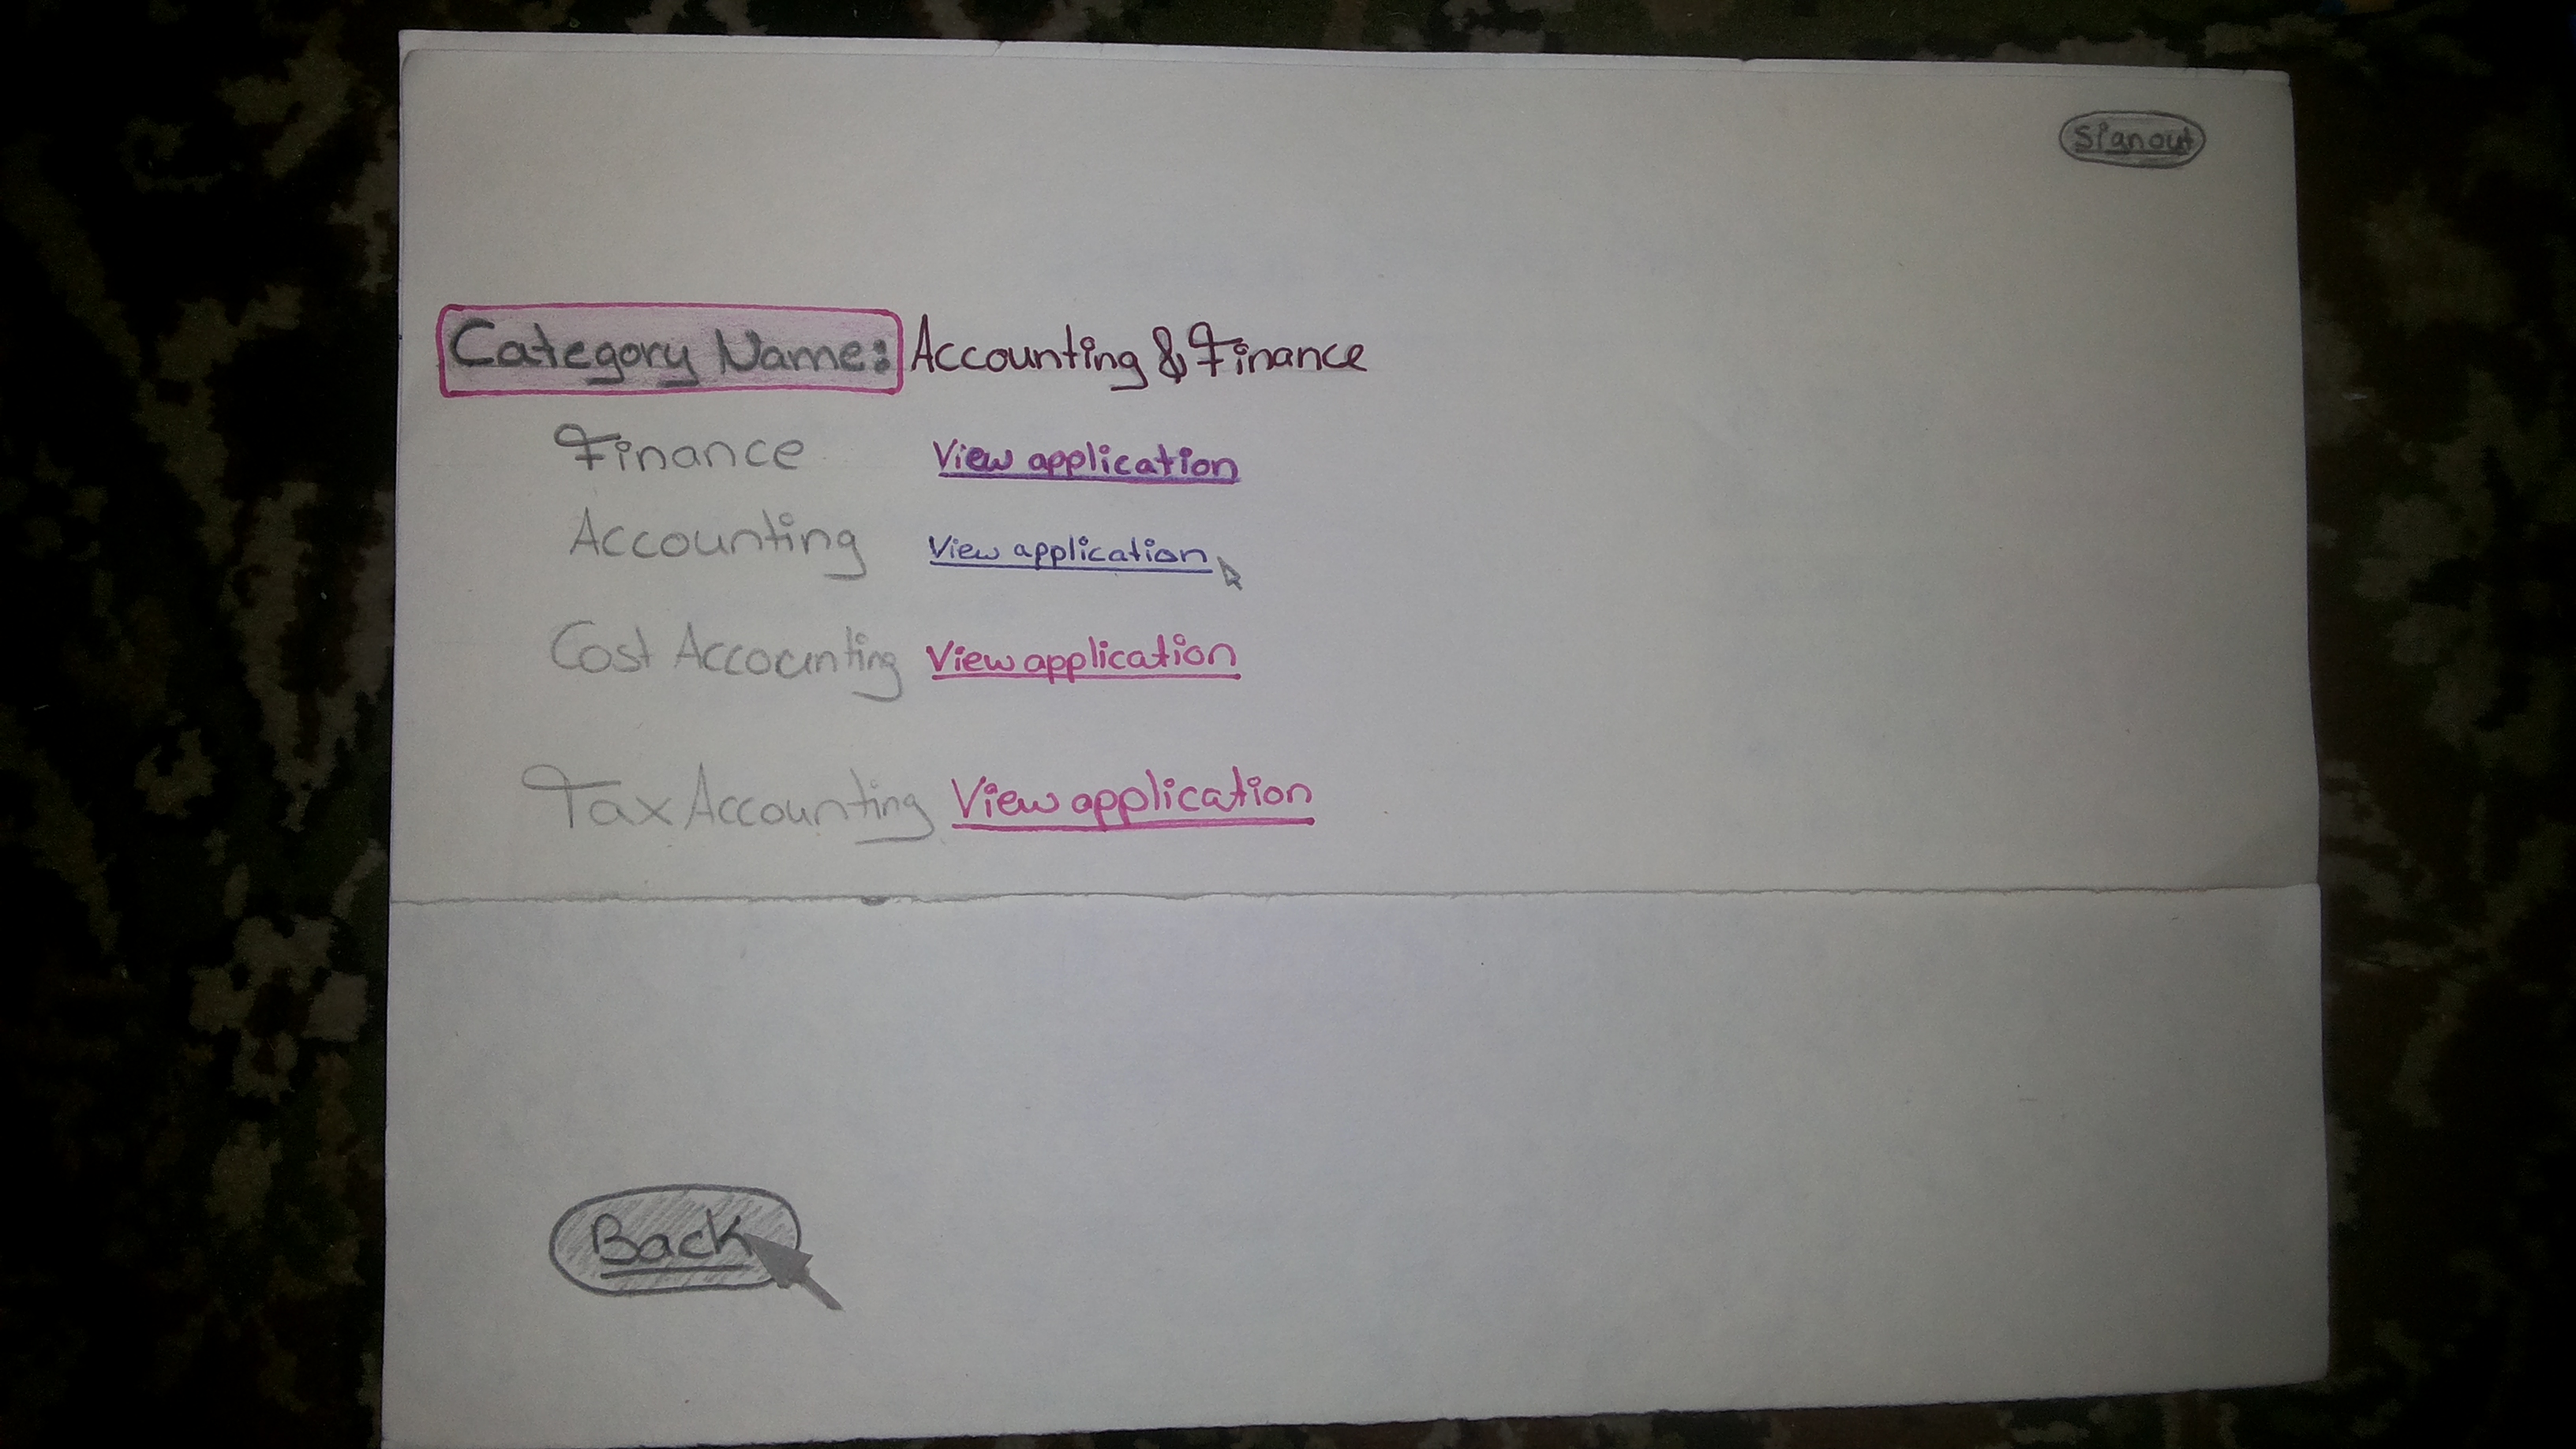 Signout
Category Name: Accounting & Finance
Finance View application
Accounting View application
Cost Accounting View application
Tax Accounting View application
Back